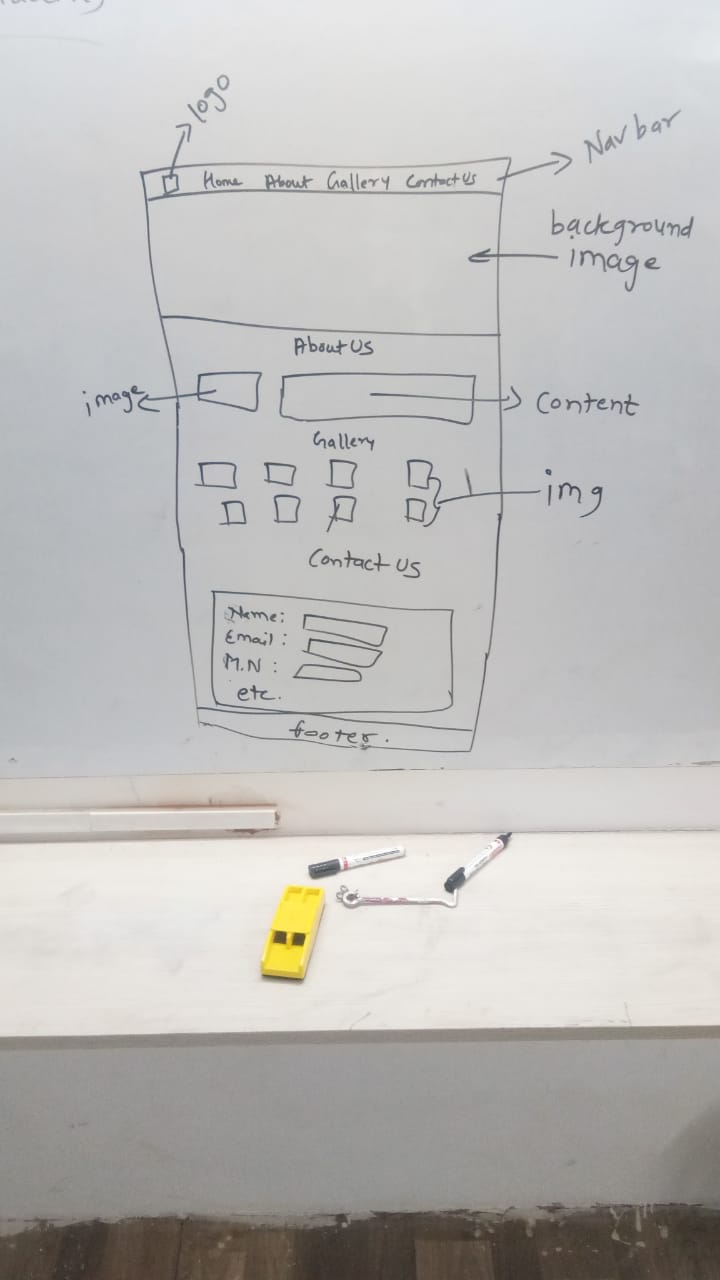 logo
Navbar
Home About Gallery Contact Us
background
image
About Us
image
Content
Gallery
img
Contact Us
Name:
Email :
M.N :
etc.
footer.